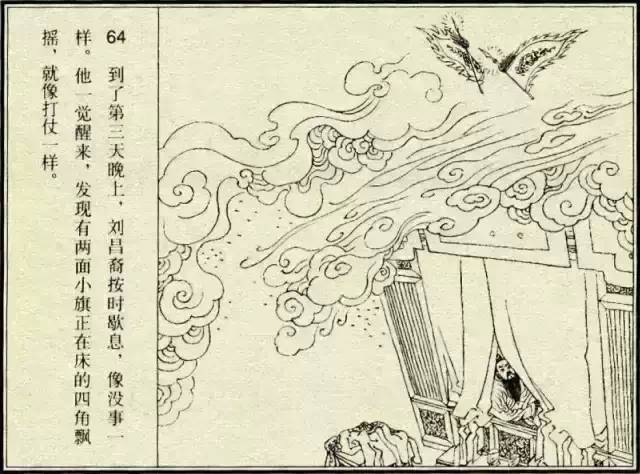 64 到了第三天晚上，刘昌裔按时歇息，像没事一
样。他一觉醒来，发现有两面小旗正在床的四角飘
摇，就像打仗一样。